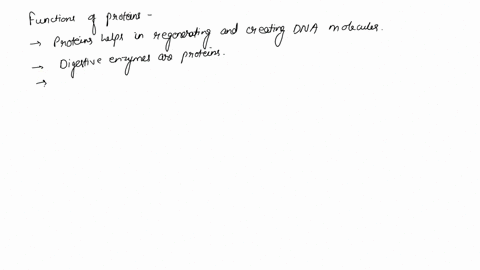 Functions of proteins -
→ Proteins helps in regenerating and creating DNA molecules.
→ Digestive enzymes are proteins.
→